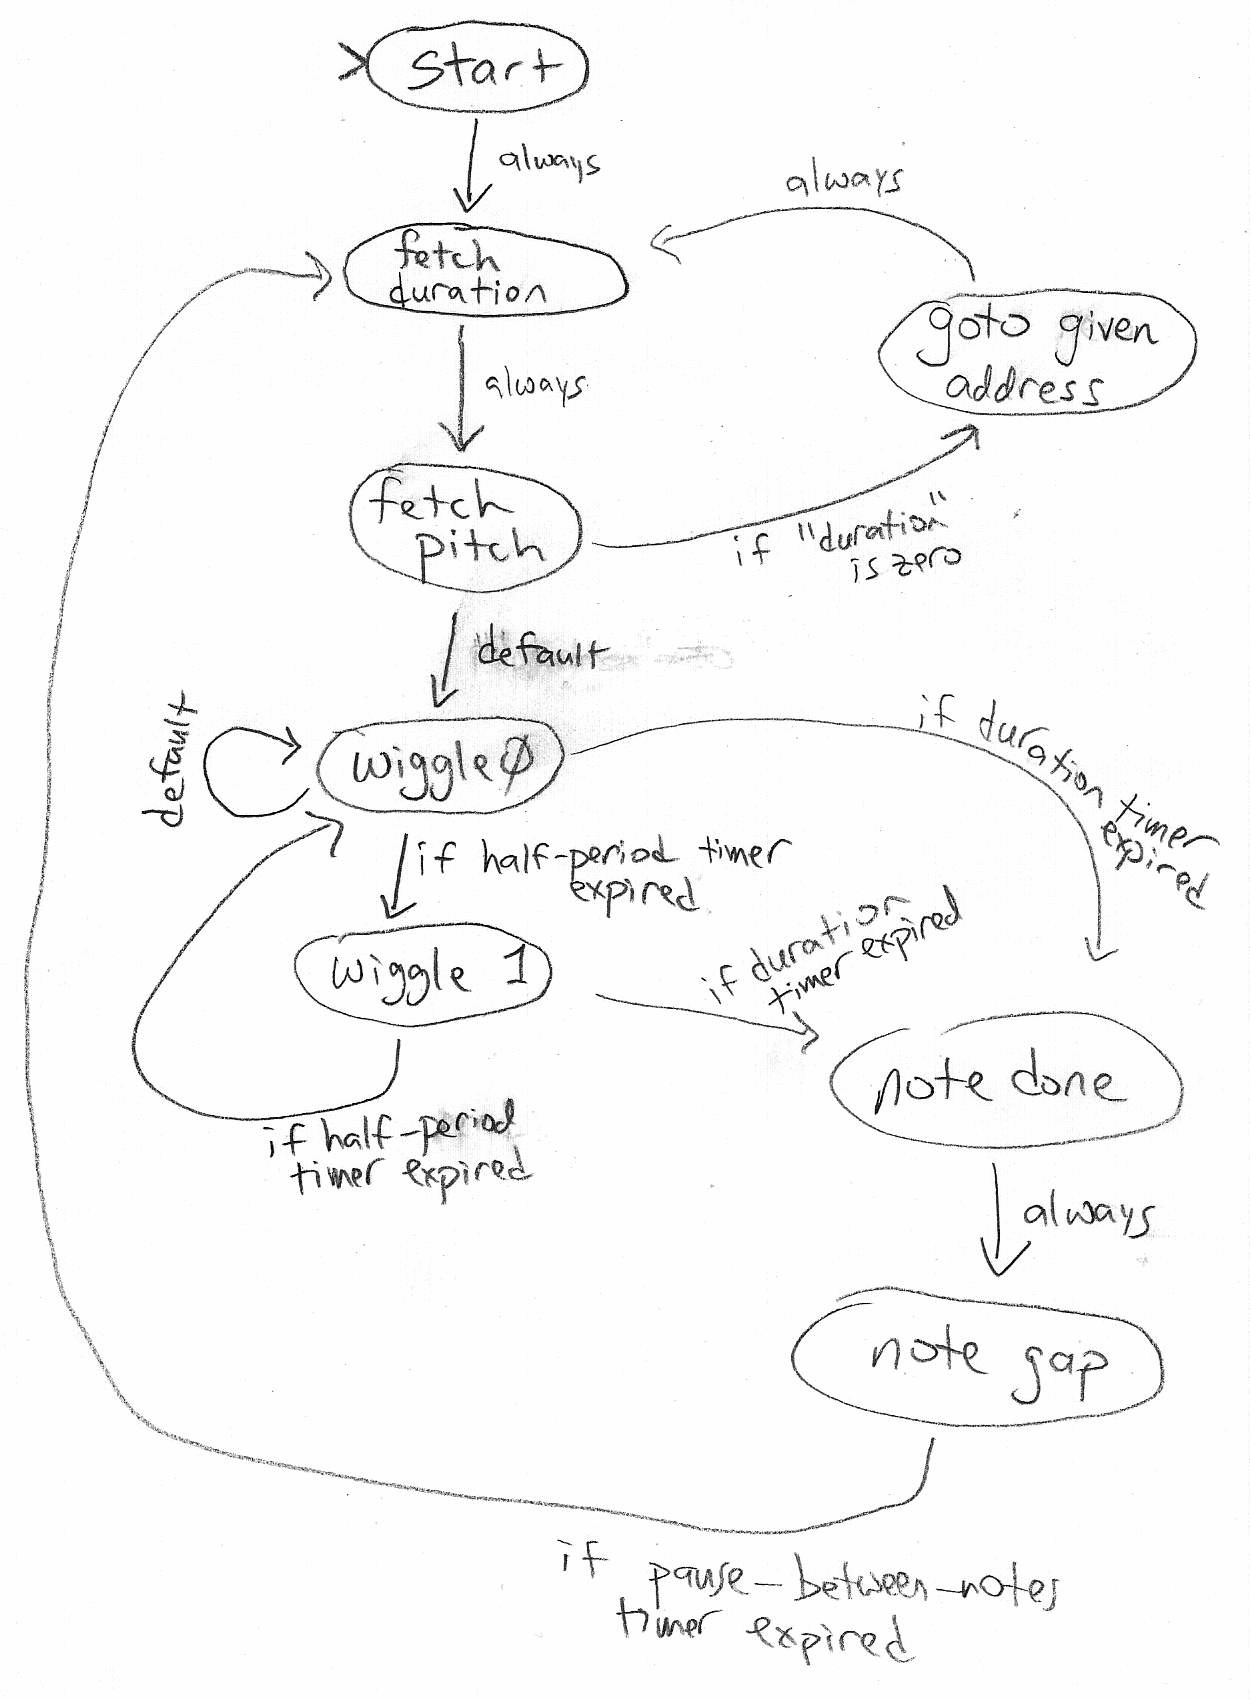 start
always
always
fetch
duration
goto given
address
always
fetch
pitch
if "duration"
is zero
default
default
wiggle0
if duration timer
expired
if half-period timer
expired
if duration
timer expired
wiggle 1
note done
if half-period
timer expired
always
note gap
if pause-between-notes
timer expired